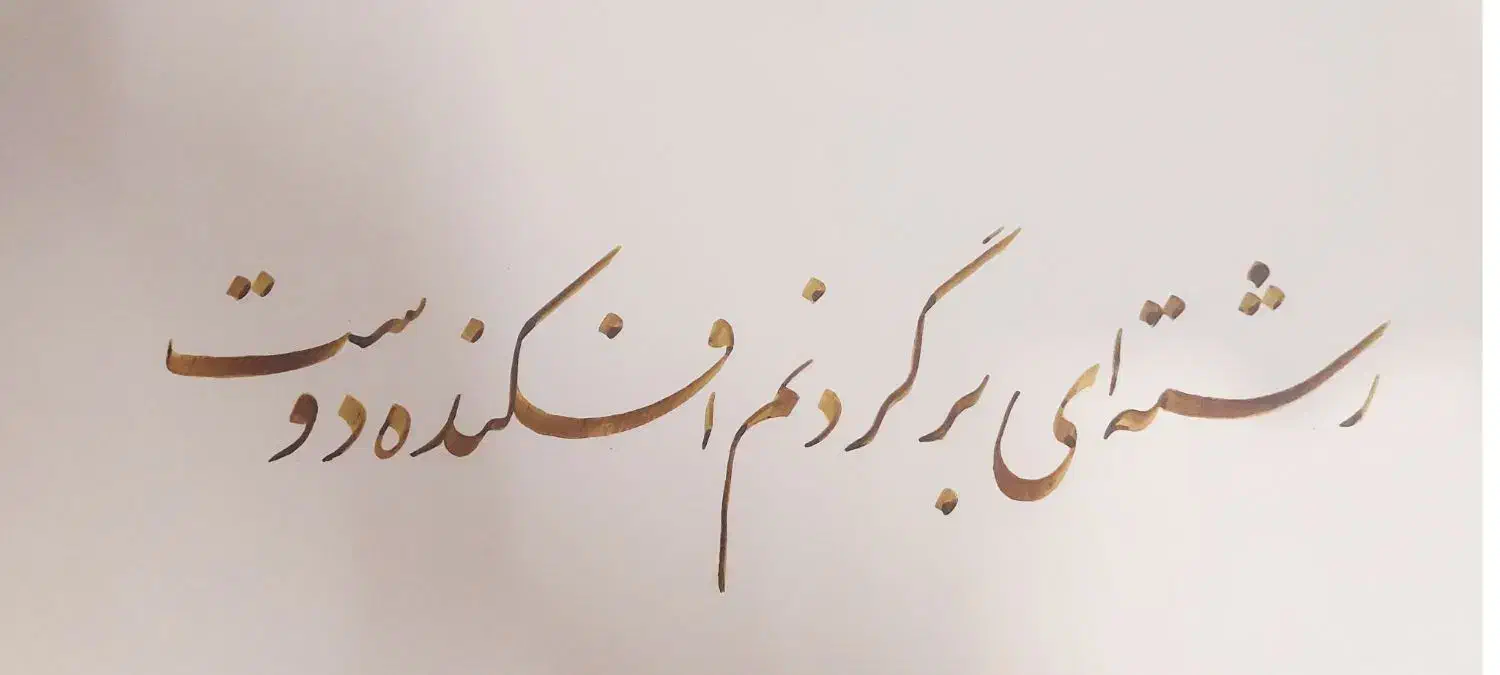 رشته‌ای بر گردنم افکنده دوست